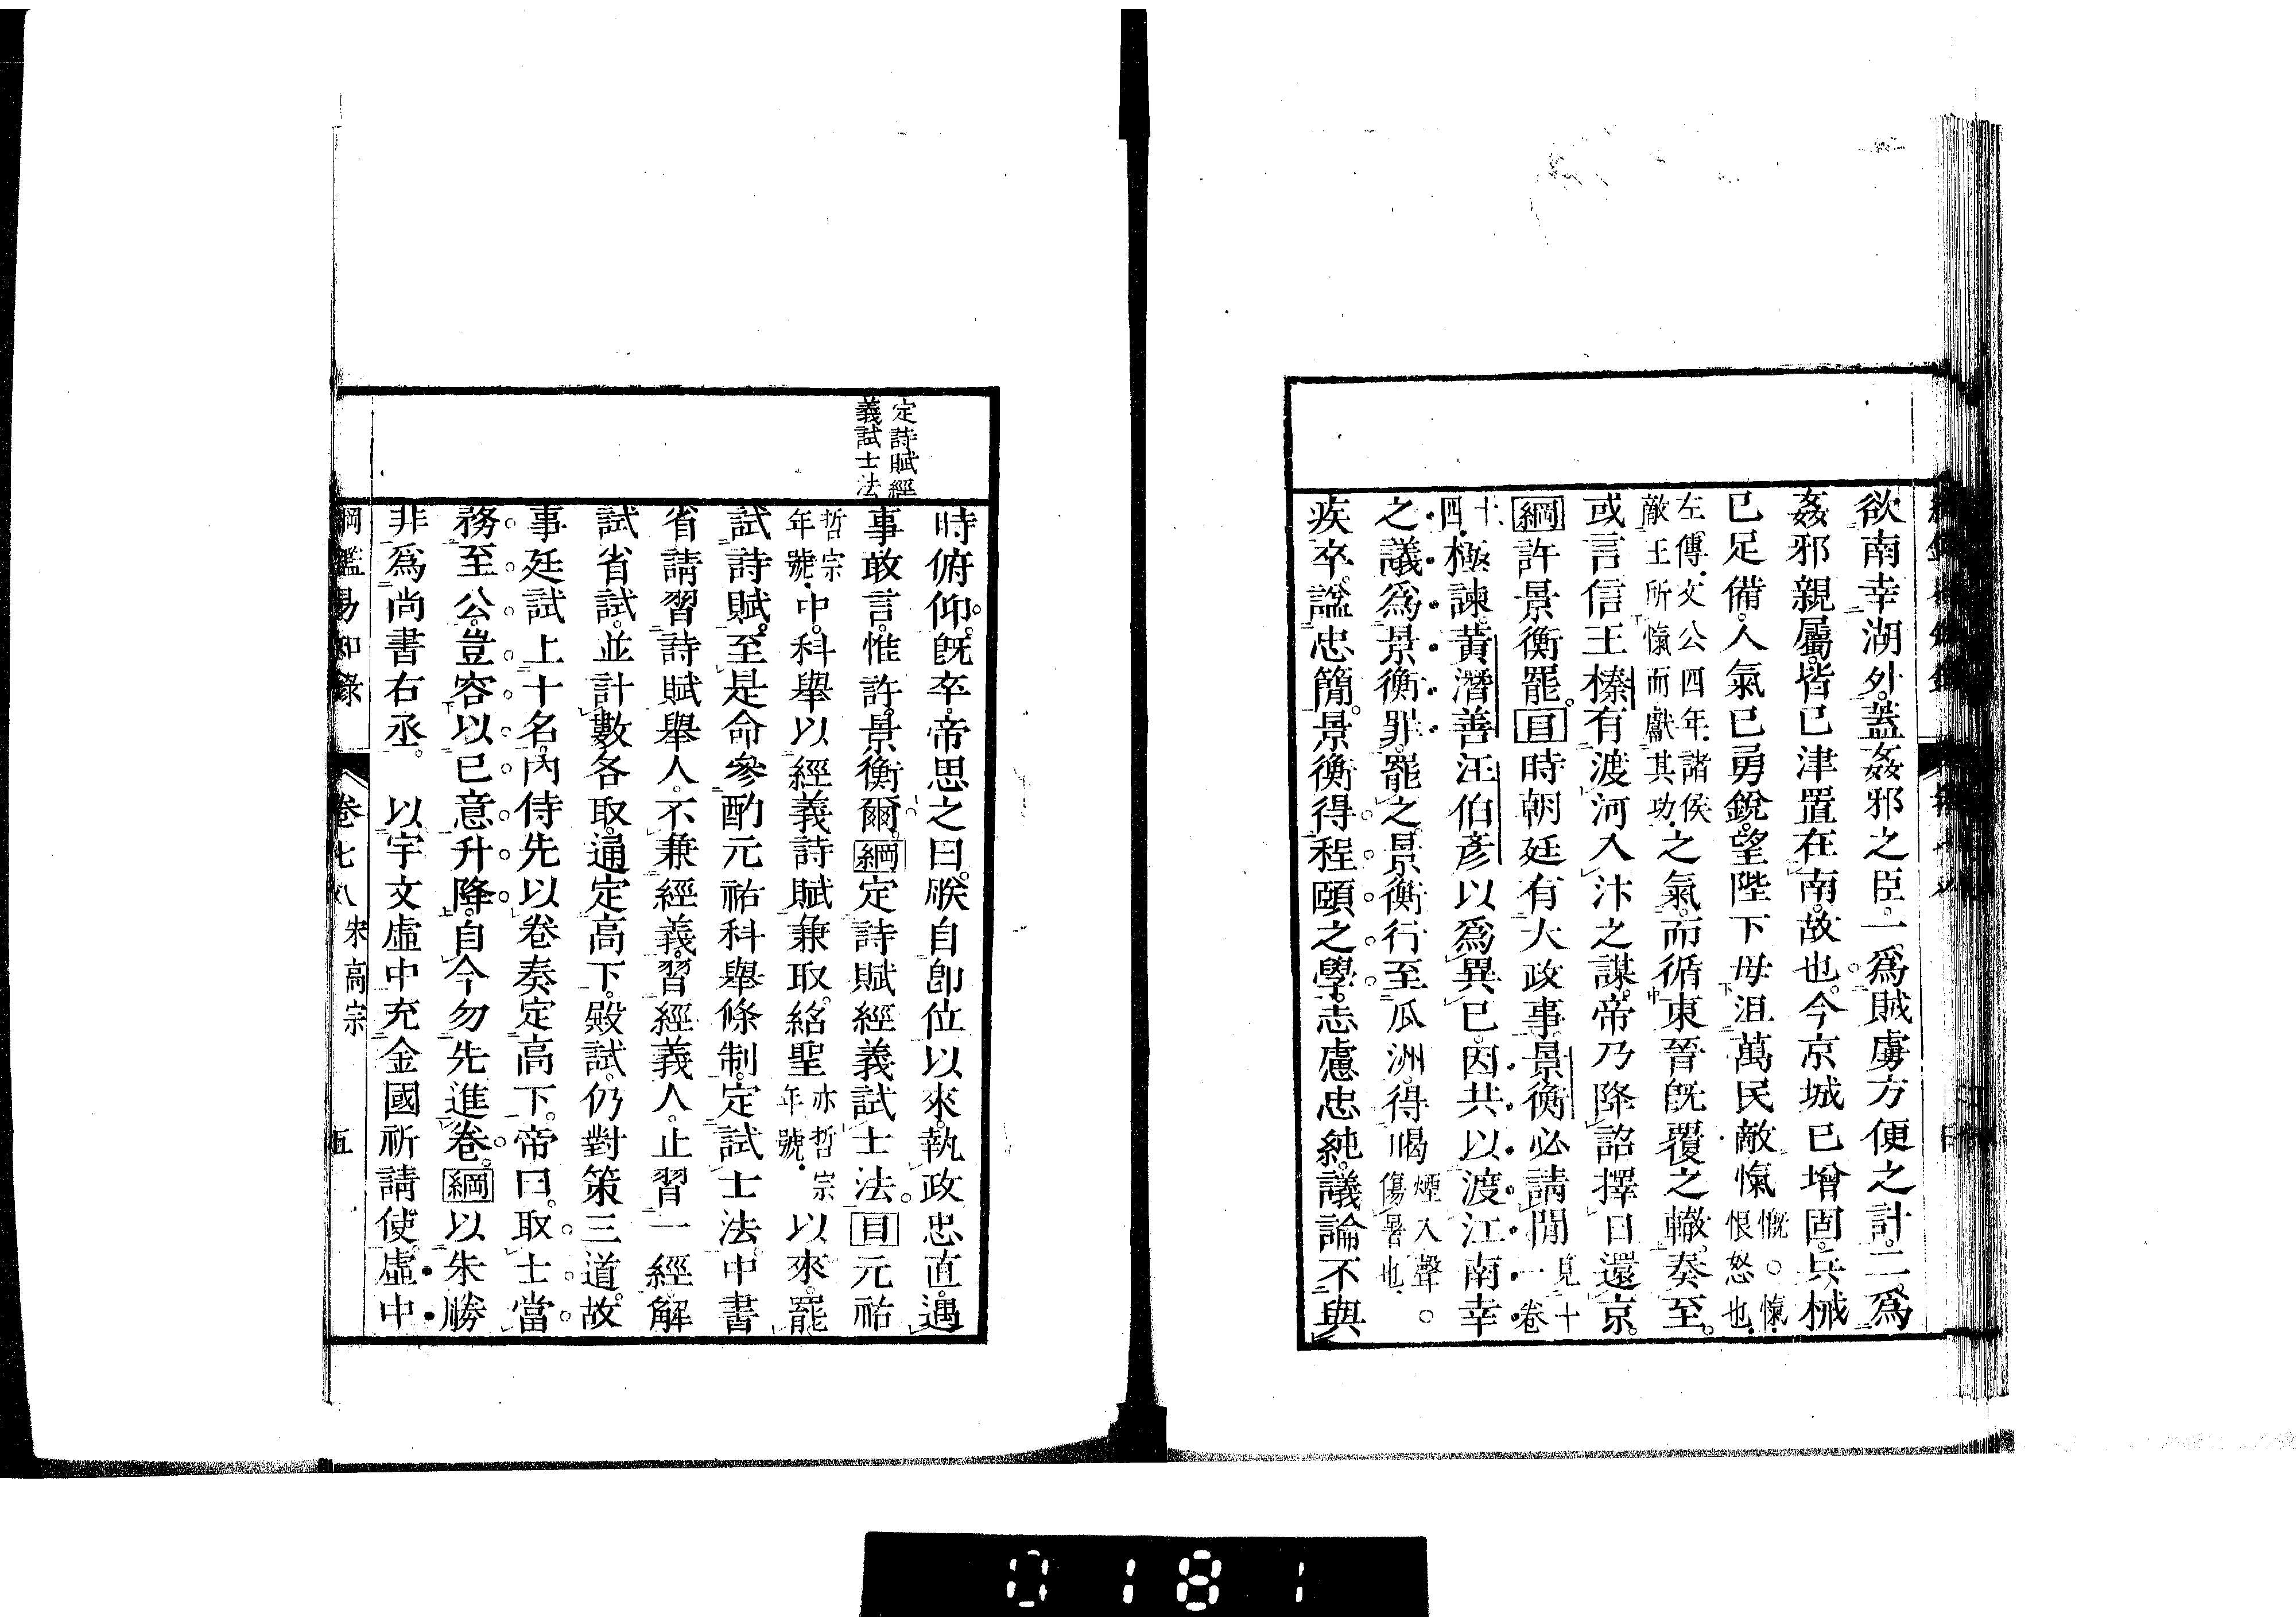 欲南幸湖外。蓋姦邪之臣。一爲賊虜方便之計。二爲
姦邪親屬。皆已津置在南。故也。今京城已增固。兵械
已足備。人氣已勇銳。望陛下毋沮萬民敵愾慨。愾恨怒也
左傳文公四年諸侯敵王所愾而獻其功之氣。而循東晉旣覆之轍。奏至。
或言信王榛有渡河入汴之謀。帝乃降詔擇日還京。
綱許景衡罷。目時朝廷有大政事。景衡必請閒見十一卷
十四極諫。黃潛善汪伯彥以爲異已。因共以渡江南幸
之議爲景衡罪。罷之。景衡行至瓜洲。得暍煙入聲。傷暑也
疾卒。諡忠簡。景衡得程頤之學。志慮忠純。議論不與
時俯仰。旣卒。帝思之曰。朕自卽位以來。執政忠直。遇
事敢言。惟許景衡爾。綱定詩賦經義試士法。目元祐
哲宗年號中。科舉以經義詩賦兼取。紹聖亦哲宗年號以來。罷
試詩賦。至是命參酌元祐科舉條制。定試士法。中書
省請習詩賦舉人。不兼經義。習經義人。止習一經。解
試省試。並計數各取。通定高下。殿試。仍對策三道。故
事廷試上十名。內侍先以卷奏定高下。帝曰。取士當
務至公。豈容以已意升降。自今勿先進卷。綱以朱勝
非爲尚書右丞。 以宇文虛中充金國祈請使。虛中
定詩賦經
義試士法
綱鑑易知錄 卷七八 宋高宗 五